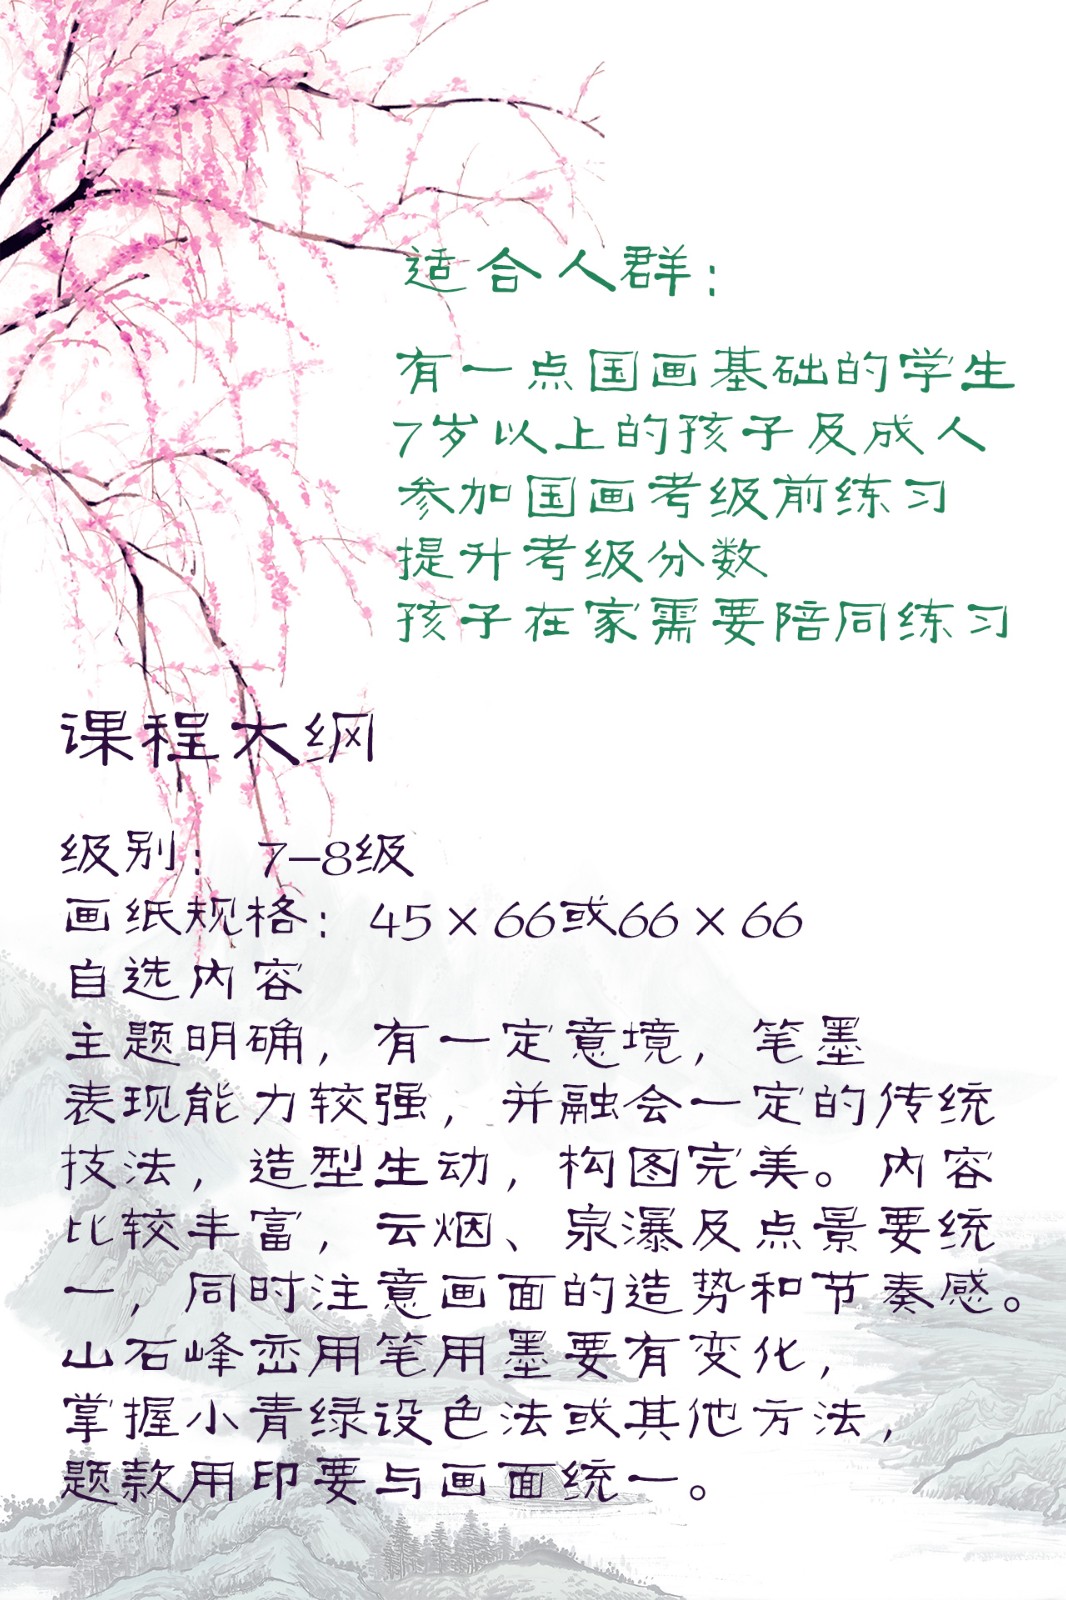 适合人群：
有一点国画基础的学生
7岁以上的孩子及成人
参加国画考级前练习
提升考级分数
孩子在家需要陪同练习
课程大纲
级别： 7-8级
画纸规格：45×66或66×66
自选内容
主题明确，有一定意境，笔墨
表现能力较强，并融会一定的传统
技法，造型生动，构图完美。内容
比较丰富，云烟、泉瀑及点景要统
一，同时注意画面的造势和节奏感。
山石峰峦用笔用墨要有变化，
掌握小青绿设色法或其他方法，
题款用印要与画面统一。